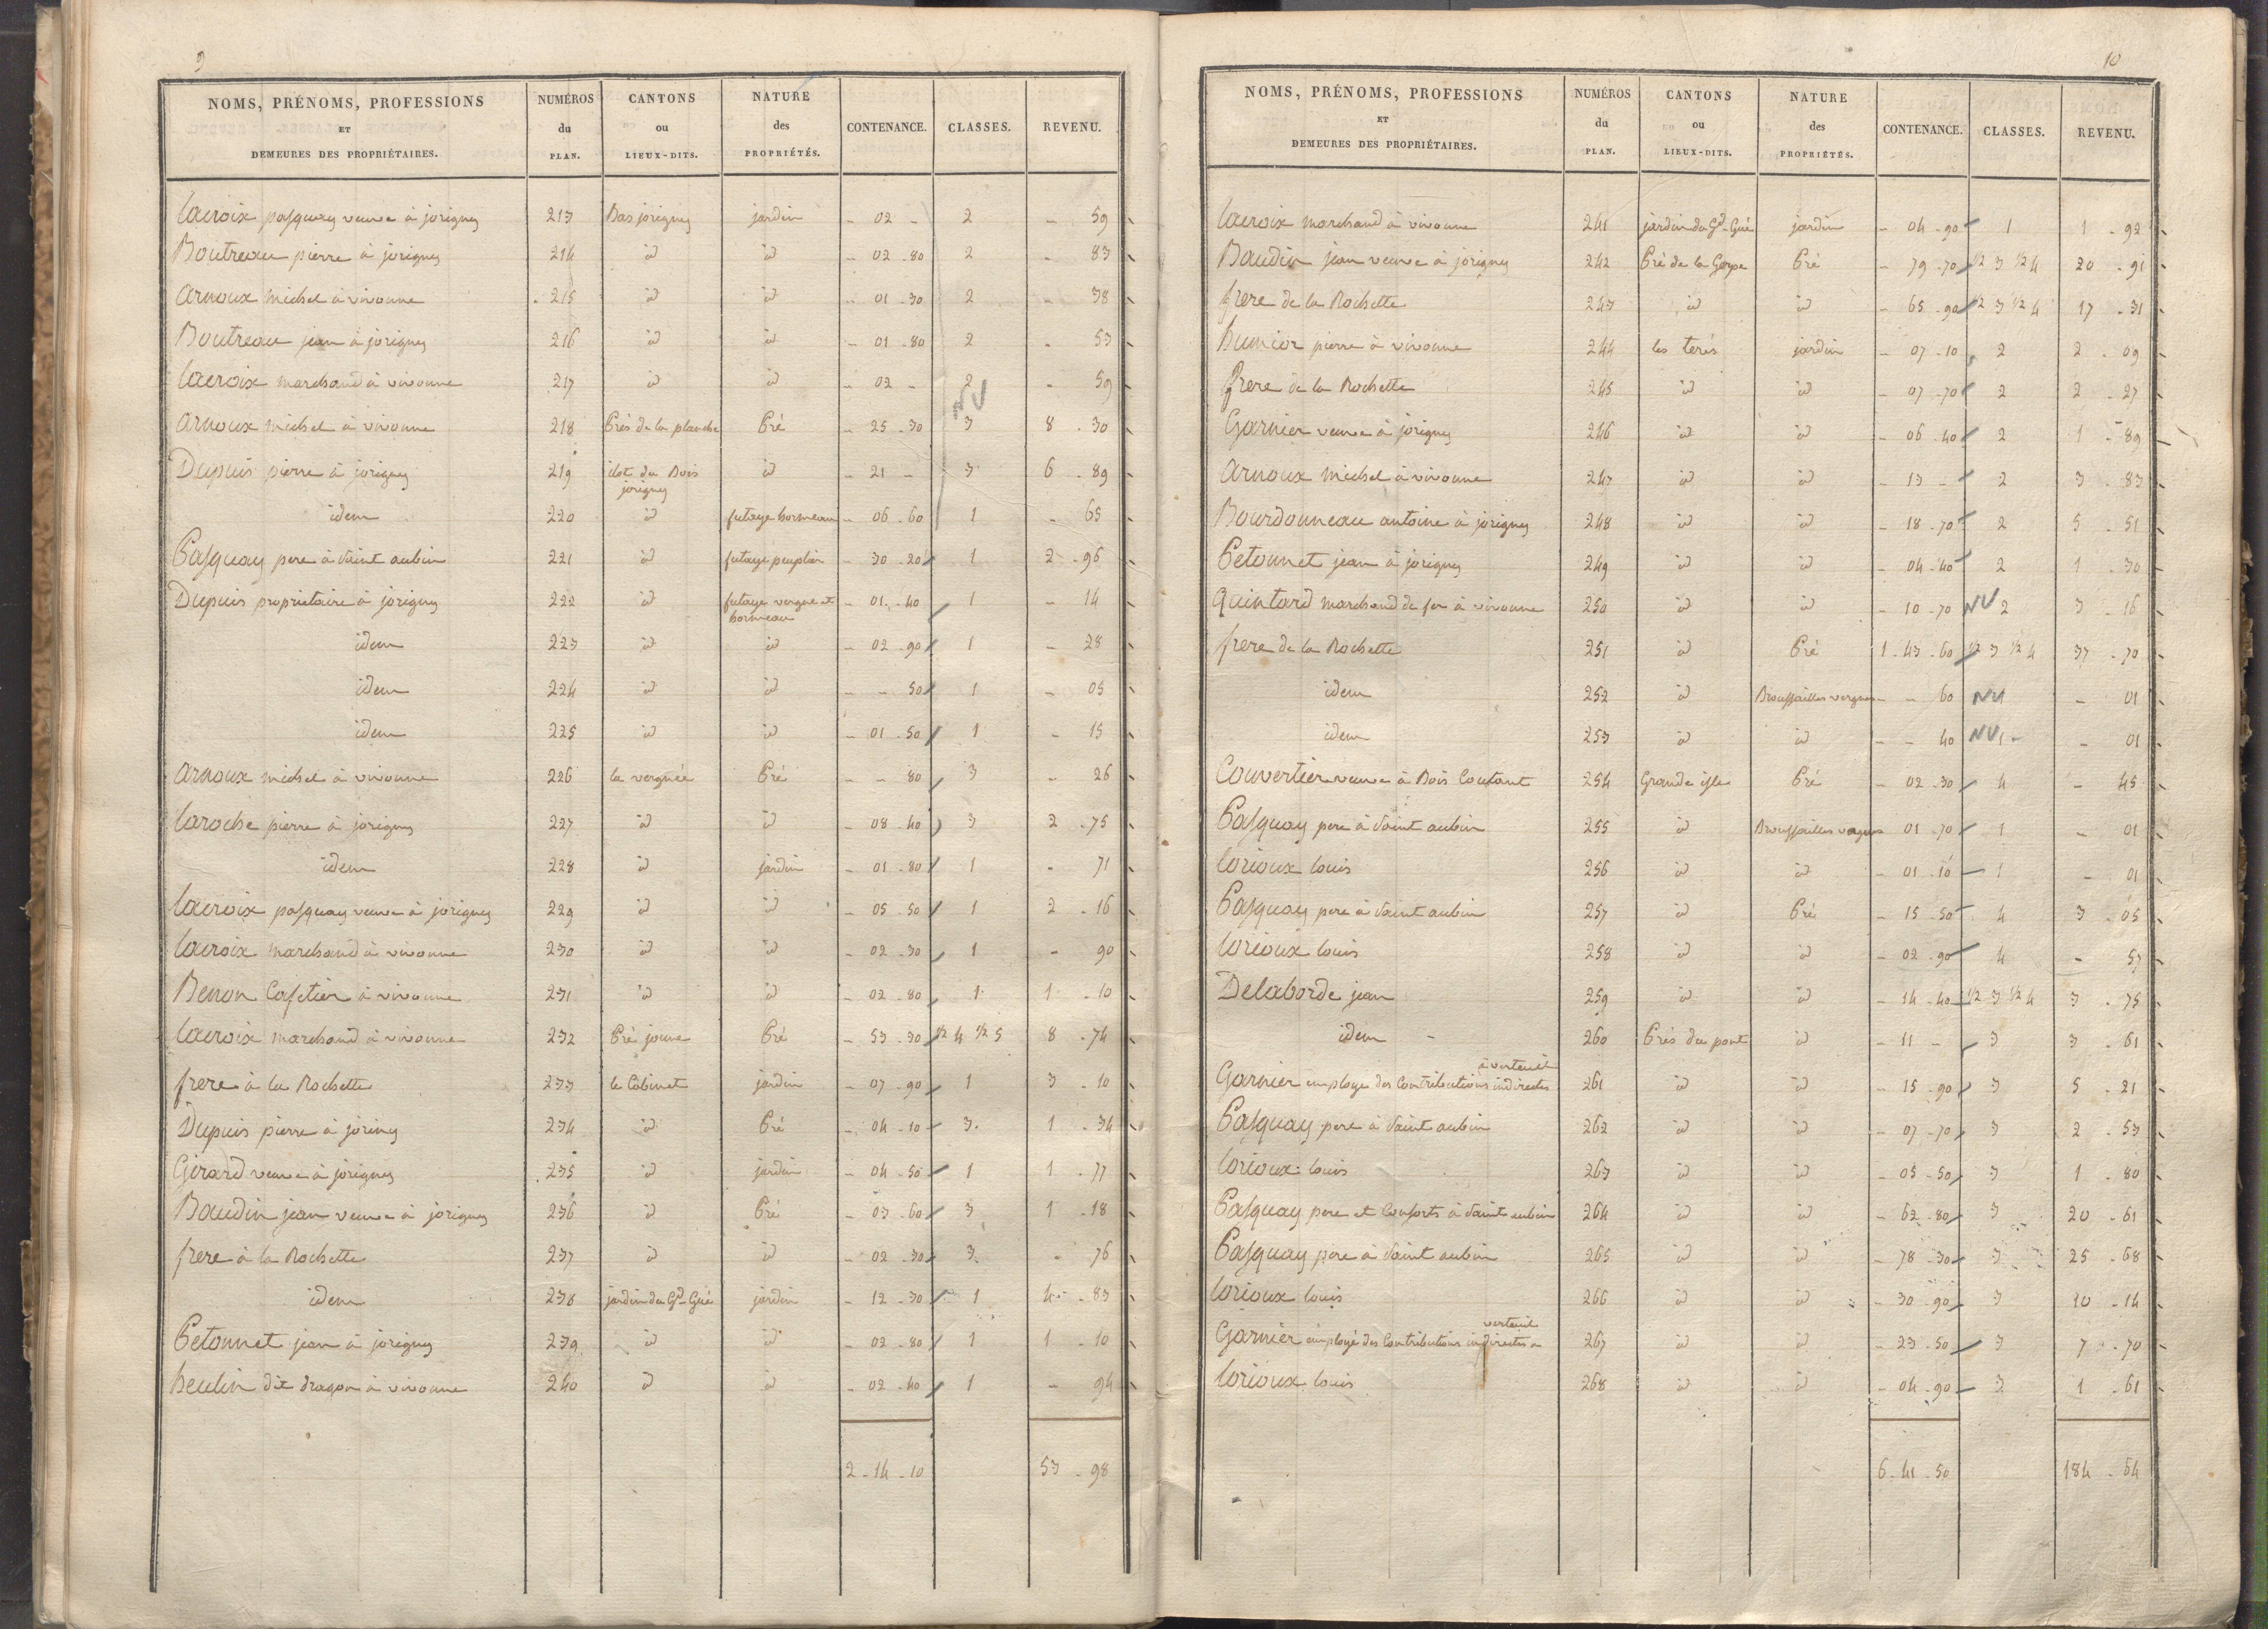 9
NOMS, PRÉNOMS, PROFESSIONS ET DEMEURES DES PROPRIÉTAIRES. NUMÉROS du PLAN. CANTONS ou LIEUX-DITS. NATURE des PROPRIÉTÉS. CONTENANCE. CLASSES. REVENU.
Lacroix pasquay veuve à jorigny 213 Bas jorigny jardin - 02 - 2 - 59
Boutreau pierre à jorigny 214 id id - 02 - 80 2 - 83
Arnoux michel à vivonne 215 id id - 01 - 30 2 - 38
Boutreau jean à jorigny 216 id id - 01 - 80 2 - 53
Lacroix marchand à vivonne 217 id id - 02 - 2 - 59
NV
Arnoux michel à vivonne 218 Prés de la planche Pré - 25 - 30 3 8 - 30
Dupuis pierre à jorigny 219 ilot du Bois jorigny id - 21 - 3 6 - 89
idem 220 id futaye hormeau - 06 - 60 1 - 65
Pasquay pere à Saint aubin 221 id futaye peuplier - 30 - 20 1 2 - 96
Dupuis propriétaire à jorigny 222 id futaye vergne et hormeau - 01 - 40 1 - 14
idem 223 id id - 02 - 90 1 - 28
idem 224 id id - - 50 1 - 05
idem 225 id id - 01 - 50 1 - 15
Arnoux michel à vivonne 226 la vergnée Pré - - 80 3 - 26
Laroche pierre à jorigny 227 id id - 08 - 40 3 2 - 75
idem 228 id jardin - 01 - 80 1 - 71
Lacroix pasquay veuve à jorigny 229 id id - 05 - 50 1 2 - 16
Lacroix marchand à vivonne 230 id id - 02 - 30 1 - 90
Benon Cafetier à vivonne 231 id id - 02 - 80 1 1 - 10
Lacroix marchand à vivonne 232 Pré joune Pré - 53 - 30 1/2 4 1/2 5 8 - 74
frere à la Rochette 233 le Cabinet jardin - 07 - 90 1 3 - 10
Dupuis pierre à joriny 234 id Pré - 04 - 10 3 1 - 34
Girard veuve à jorigny 235 id jardin - 04 - 50 1 1 - 77
Baudin jean veuve à jorigny 236 id Pré - 03 - 60 3 1 - 18
frere à la Rochette 237 id id - 02 - 30 3 - 76
idem 238 jardin du Gd Gué jardin - 12 - 30 1 4 - 83
Petonnet jean à jorigny 239 id id - 02 - 80 1 1 - 10
heulin dit dragon à vivonne 240 id id - 02 - 40 1 - 94
2 - 14 - 10 53 - 98
10
NOMS, PRÉNOMS, PROFESSIONS ET DEMEURES DES PROPRIÉTAIRES. NUMÉROS du PLAN. CANTONS ou LIEUX-DITS. NATURE des PROPRIÉTÉS. CONTENANCE. CLASSES. REVENU.
Lacroix marchand à vivonne 241 jardin du Gd Gué jardin - 04 - 90 1 1 - 92
Baudin jean veuve à jorigny 242 Pré de la Gorge Pré - 79 - 70 1/2 3 1/2 4 20 - 91
frere de la Rochette 243 id id - 65 - 90 1/2 3 1/2 4 17 - 31
pierre à vivonne 244 les terés jardin - 07 - 10 2 2 - 09
frere de la Rochette 245 id id - 07 - 70 2 2 - 27
Garnier veuve à jorigny 246 id id - 06 - 40 2 1 - 89
Arnoux michel à vivonne 247 id id - 13 - 2 3 - 83
Bourdonneau antoine à jorigny 248 id id - 18 - 70 2 5 - 51
Petonnet jean à jorigny 249 id id - 04 - 40 2 1 - 30
Quintard marchand de fer à vivonne 250 id id - 10 - 70 NV 2 3 - 16
frere de la Rochette 251 id Pré 1 - 43 - 60 1/2 3 1/2 4 37 - 70
idem 252 id Broussailles vergnes - - 60 NV 1 - 01
idem 253 id id - - 40 NV 1 - 01
Couvertier veuve à Bois Coutant 254 Grande isle Pré - 02 - 30 4 - 45
Pasquay pere à Saint aubin 255 id Broussailles vergnes - 01 - 70 1 - 01
Lorioux louis 256 id id - 01 - 10 1 - 01
Pasquay pere à Saint aubin 257 id Pré - 15 - 50 4 3 - 05
Lorioux louis 258 id id - 02 - 90 4 - 57
Delaborde jean 259 id id - 14 - 40 1/2 3 1/2 4 3 - 75
idem 260 Prés du pont id - 11 - 3 3 - 61
à verteuil
Garnier employe des Contributions indirectes 261 id id - 15 - 90 3 5 - 21
Pasquay pere à Saint aubin 262 id id - 07 - 70 3 2 - 53
Lorioux louis 263 id id - 05 - 50 3 1 - 80
Pasquay pere et Consorts à Saint aubin 264 id id - 62 - 80 3 20 - 61
Pasquay père à Saint aubin 265 id id - 78 - 30 3 25 - 68
Lorioux louis 266 id id - 30 - 90 3 10 - 14
verteuil
Garnier employé des Contributions indirectes à 267 id id - 23 - 50 3 7 - 70
Lorioux louis 268 id id - 04 - 90 3 1 - 61
6 - 41 - 50 184 - 64